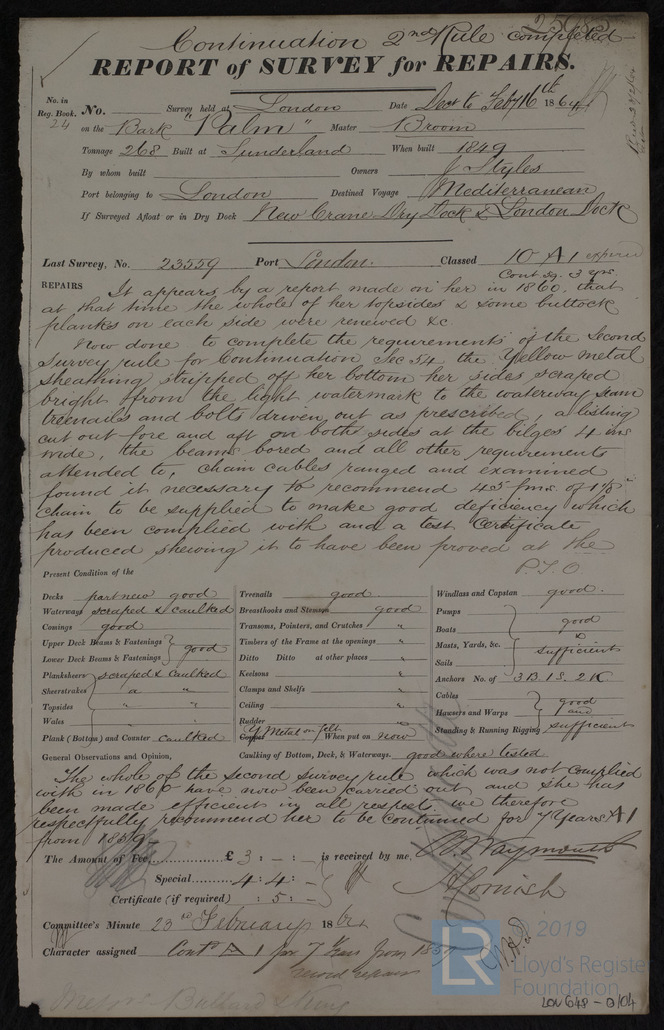 Continuation 2nd Rule completed
REPORT of SURVEY for REPAIRS.
No. in Reg. Book. 24
No. Survey held at London Date Decr to Feby 16th 1864
on the Bark "Palm" Master Broom
Tonnage 268 Built at Sunderland When built 1849
By whom built Owners J Styles
Port belonging to London Destined Voyage Mediterranean
If Surveyed Afloat or in Dry Dock New Crane Dry Dock & London Dock
Last Survey, No. 23559 Port London. Classed 10 A1 expired
Cont. 59. 3 yrs.
REPAIRS It appears by a report made on her in 1860, that
at that time the whole of her topsides & some buttock
planks on each side were renewed &c
Now done to complete the requirements of the Second
Survey rule for Continuation Sec 54 the Yellow metal
sheathing stripped off her bottom her sides scraped
bright from the light watermark to the waterway seam
treenails and bolts driven out as prescribed, a listing
cut out fore and aft on both sides at the bilges 4 ins
wide, the beams bored and all other requirements
attended to, chain cables ranged and examined
found it necessary to recommend 45 fms. of 1 1/8 in
chain to be supplied to make good deficiency which
has been complied with and a test Certificate
produced shewing it to have been proved at the
P.T.O
Present Condition of the
Decks part new good
Waterways scraped & caulked
Comings good
Upper Deck Beams & Fastenings
Lower Deck Beams & Fastenings } good
Plansheers scraped & caulked
Sheerstrakes " "
Topsides " "
Wales " "
Plank (Bottom) and Counter caulked
Treenails good
Breasthooks and Stemson good
Transoms, Pointers, and Crutches "
Timbers of the Frame at the openings "
Ditto Ditto at other places "
Keelsons "
Clamps and Shelfs "
Ceiling "
Rudder "
Copper Y Metal on felt When put on now
Caulking of Bottom, Deck, & Waterways. good where tested
Windlass and Capstan good.
Pumps
Boats } good
Masts, Yards, &c.
Sails } sufficient
Anchors No. of 3B. 1S. 2K
Cables
Hawsers and Warps } good and
Standing & Running Rigging sufficient
General Observations and Opinion,
The whole of the second survey rule which was not complied
with in 1860 have now been carried out, and she has
been made efficient in all respects we therefore
respectfully recommend her to be continued for 7 Years A1
from 1859
The Amount of Fee, £ 3 : - : - is received by me, B. Waymouth
Special 4 : 4 : -
Certificate (if required) : 5 : -
J Cornish
Committee's Minute 23rd February 1864
Character assigned Contd A1 for 7 Years from 1859
record repairs
© 2019
LR
Lloyd's Register
Foundation
LON 648 - 0104